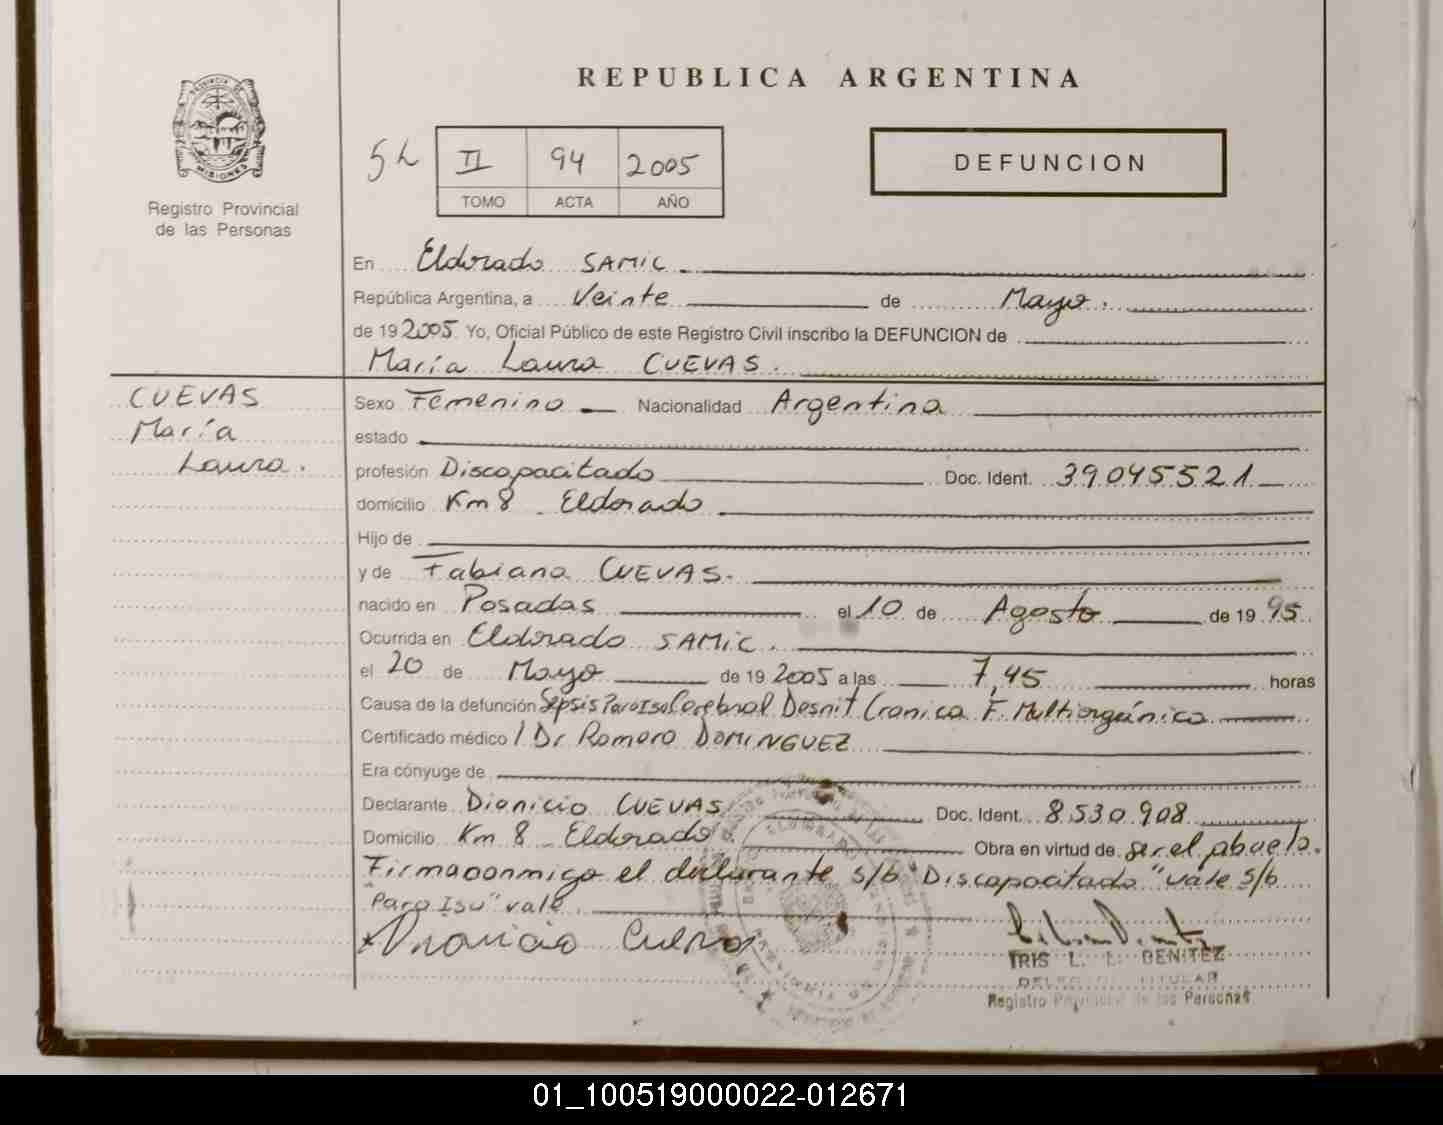 REPUBLICA ARGENTINA
PROVINCIA DE MISIONES
Registro Provincial
de las Personas
II 94 2005
TOMO ACTA AÑO
DEFUNCION
En Eldorado SAMIC.
República Argentina, a Veinte de Mayo.
de 19 2005 Yo, Oficial Público de este Registro Civil inscribo la DEFUNCION de
María Laura CUEVAS.
CUEVAS
María
Laura.
Sexo Femenino Nacionalidad Argentina
estado
profesión Discapacitado Doc. Ident. 39045521
domicilio Km 8 Eldorado
Hijo de
y de Fabiana CUEVAS.
nacido en Posadas el 10 de Agosto de 19 95
Ocurrida en Eldorado SAMIC.
el 20 de Mayo de 19 2005 a las 7,45 horas
Causa de la defunción Sepsis ParaIsu Cerebral Desnit Cronica F. Multiorgánica
Certificado médico / Dr Romero DOMINGUEZ
Era cónyuge de
Declarante Dionicio CUEVAS Doc. Ident. 8.530.908
Domicilio Km 8 Eldorado. Obra en virtud de ser el abuelo.
Firma conmigo el declarante s/b "Discapacitado" vale s/b
"Para Isu" vale
Dionicio Cueva
IRIS L. L. BENITEZ
TITULAR
Registro Provincial de las Personas
01_100519000022-012671